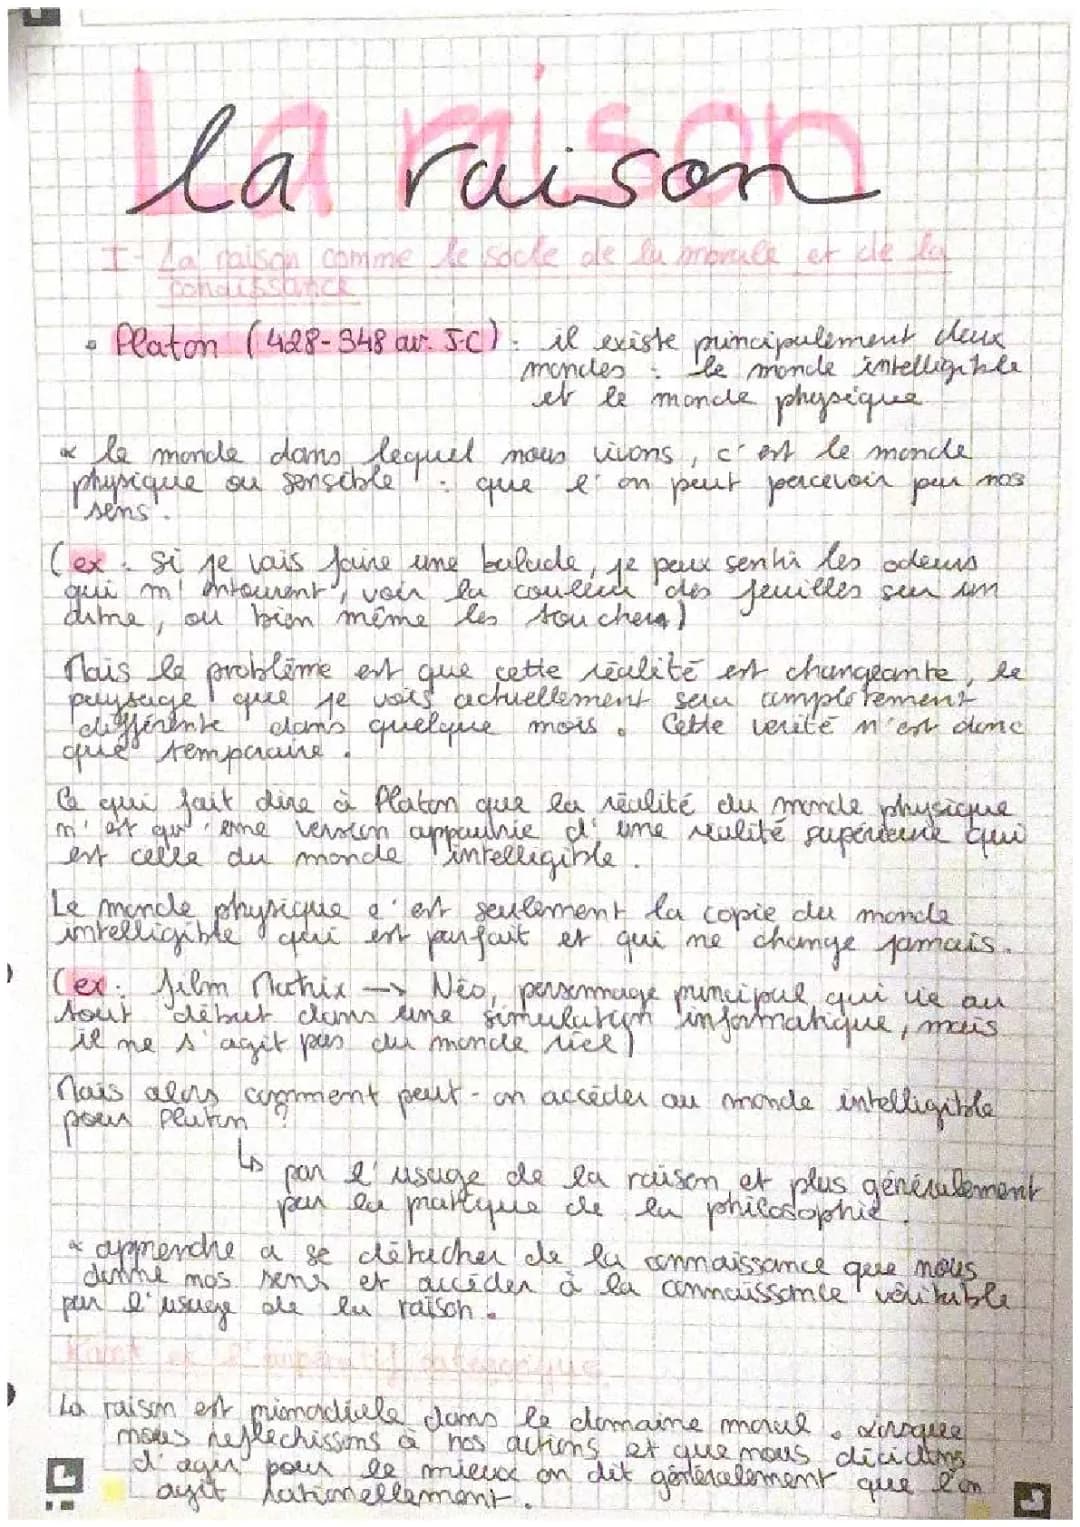 La raison
la raison
I- La raison comme le socle de la morale et de la
connaissance
• Platon (428-348 av. J-C) : il existe principalement deux
mondes : le monde intelligible
et le monde physique
* le monde dans lequel nous vivons, c'est le monde
physique ou sensible : que l'on peut percevoir par nos
sens.
(ex : si je vais faire une balade, je peux sentir les odeurs
qui m'entourent, voir la couleur des feuilles sur un
arbre, ou bien même les toucher)
Mais le problème est que cette réalité est changeante, le
paysage que je vois actuellement sera complètement
différente dans quelque mois. Cette vérité n'est donc
que temporaire.
Ce qui fait dire à Platon que la réalité du monde physique
n'est qu'une version appauvrie d'une réalité supérieure qui
est celle du monde intelligible.
Le monde physique c'est seulement la copie du monde
intelligible qui est parfait et qui ne change jamais.
(ex : film Matrix → Néo, personnage principal qui vie au
tout début dans une simulation informatique, mais
il ne s'agit pas du monde réel)
Mais alors comment peut-on accéder au monde intelligible
pour Platon ?
↳ par l'usage de la raison et plus généralement
par la pratique de la philosophie.
* apprendre a se détacher de la connaissance que nous
donne nos sens et accéder à la connaissance véritable
par l'usage de la raison.
Kant et l'impératif catégorique
La raison est primordiale dans le domaine moral. Lorsque
nous réflechissons à nos actions et que nous décidons
d'agir pour le mieux on dit généralement que l'on
agit rationellement.